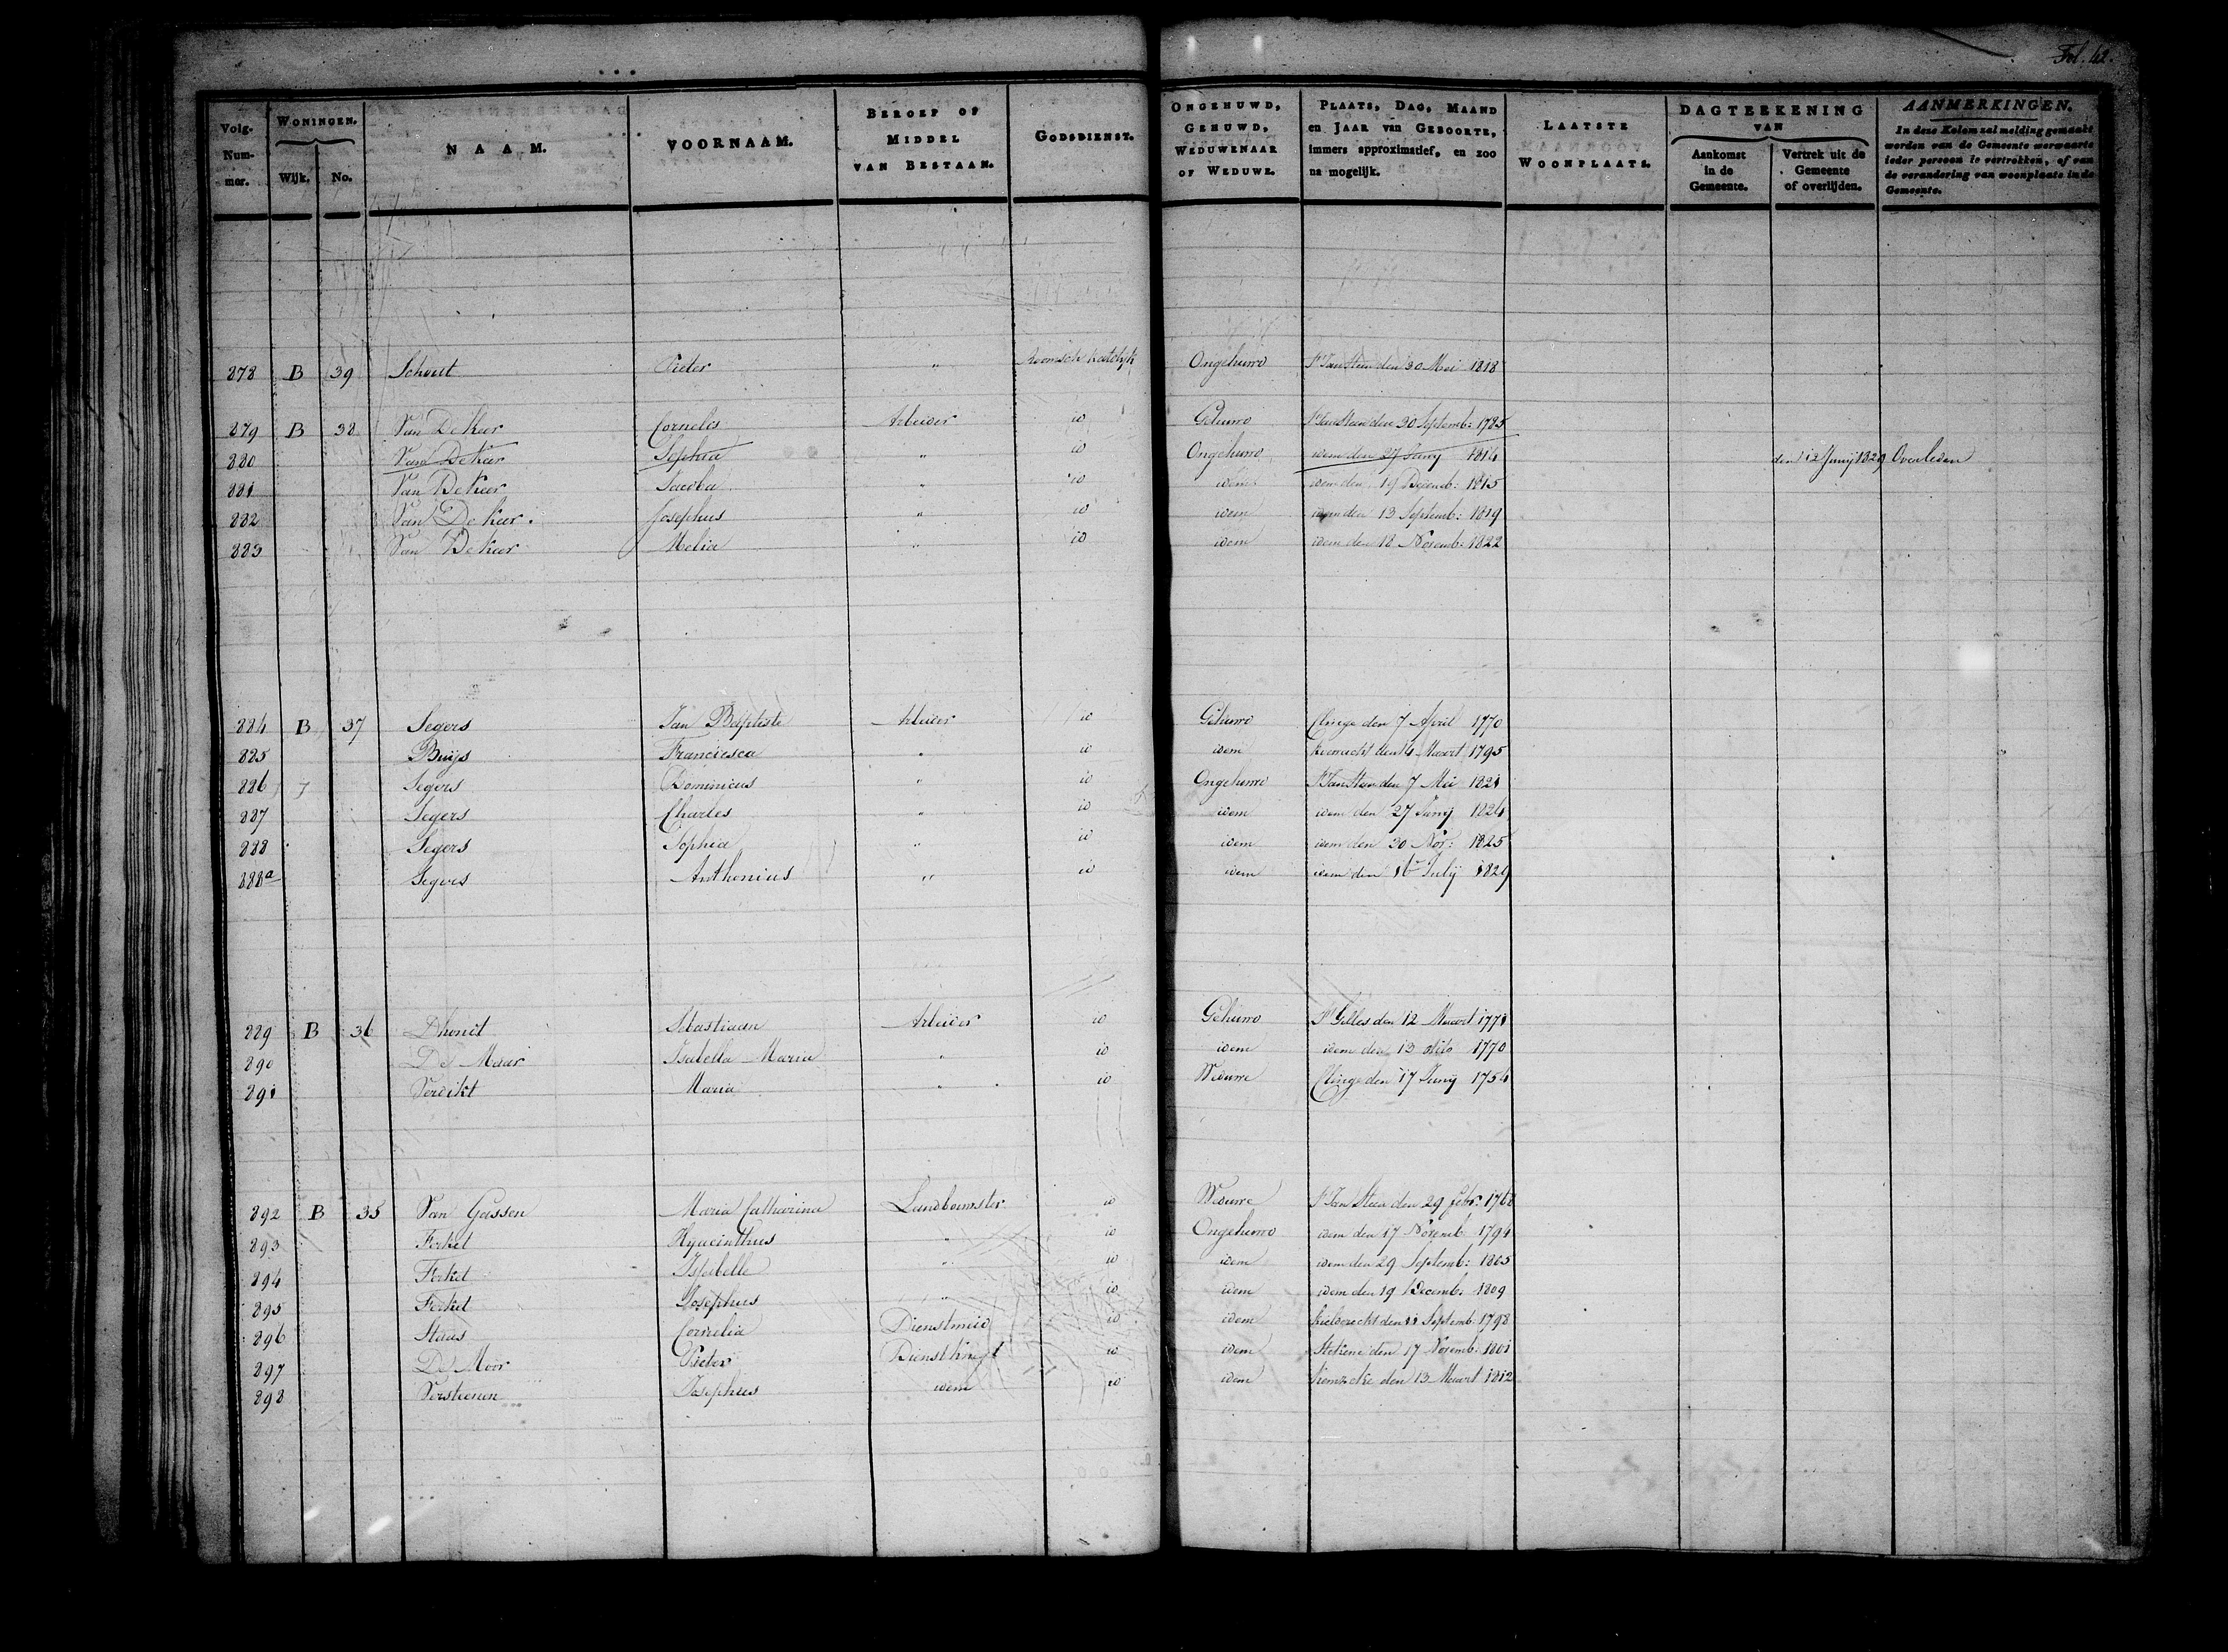 Fol. 42.
Volg-Num-mer. WONINGEN. Wijk. No. NAAM. VOORNAAM. BEROEP OF MIDDEL VAN BESTAAN. GODSDIENST. ONGEHUWD, GEHUWD, WEDUWENAAR OF WEDUWE. PLAATS, DAG, MAAND en JAAR van GEBOORTE, immers approximatief, en zoo na mogelijk. LAATSTE WOONPLAATS. DAGTEEKENING VAN Aankomst in de Gemeente. Vertrek uit de Gemeente of overlijden. AANMERKINGEN. In deze Kolom zal melding gemaakt worden van de Gemeente werwaarts ieder persoon is vertrokken, of van de verandering van woonplaats in de Gemeente.
878 B 39 Schout Pieter " Roomsch Katolyk Ongehuwd St Jan Steen den 30 Mei 1818
879 B 38 Van De Keer Cornelis Arbeider id Gehuwd St Jan Steen den 30 Septemb: 1785
880 Van De Keer Sophia " id Ongehuwd idem den 27 Junij 1814 den 12 Junij 1829 Overleden
881 Van De Keer Jacoba " id idem idem den 19 Decemb: 1815
882 Van De Keer Josephus " id idem idem den 13 Septemb: 1819
883 Van De Keer Melia " id idem idem den 18 Novemb: 1822
884 B 37 Segers Jan Baptiste Arbeider id Gehuwd Clinge den 7 April 1770
885 Buijs Franciesca " id idem den 4 Maart 1795
886 Segers Dominicus " id Ongehuwd St Jan Steen den 7 Mei 1821
887 Segers Charles " id idem idem den 27 Junij 1824
888 Segers Sophia " id idem idem den 30 Nov: 1825
888a Segers Anthonius " id idem idem den 16 Julij 1829
889 B 36 Dhondt Sebastiaan Arbeider id Gehuwd St Gilles den 12 Maart 1771
890 De Maar Isabella Maria " id idem idem den 13 dito 1770
891 Verdikt Maria " id Weduwe Clinge den 17 Junij 1754
892 B 35 Van Gassen Maria Catharina Landbouwster id Weduwe St Jan Steen den 29 Febr: 1768
893 Ferket Hyacinthus " id Ongehuwd idem den 17 Novemb 1794
894 Ferket Isabelle " id idem idem den 29 Septemb: 1805
895 Ferket Josephus " id idem idem den 19 Decemb: 1809
896 Staas Cornelia Dienstmeid id idem Kieldrecht den 11 Septemb: 1798
897 De Moor Pieter Dienstknegt id idem Stekene den 17 Novemb: 1801
898 Verstienen Josephus idem id idem Kemzeke den 13 Maart 1812